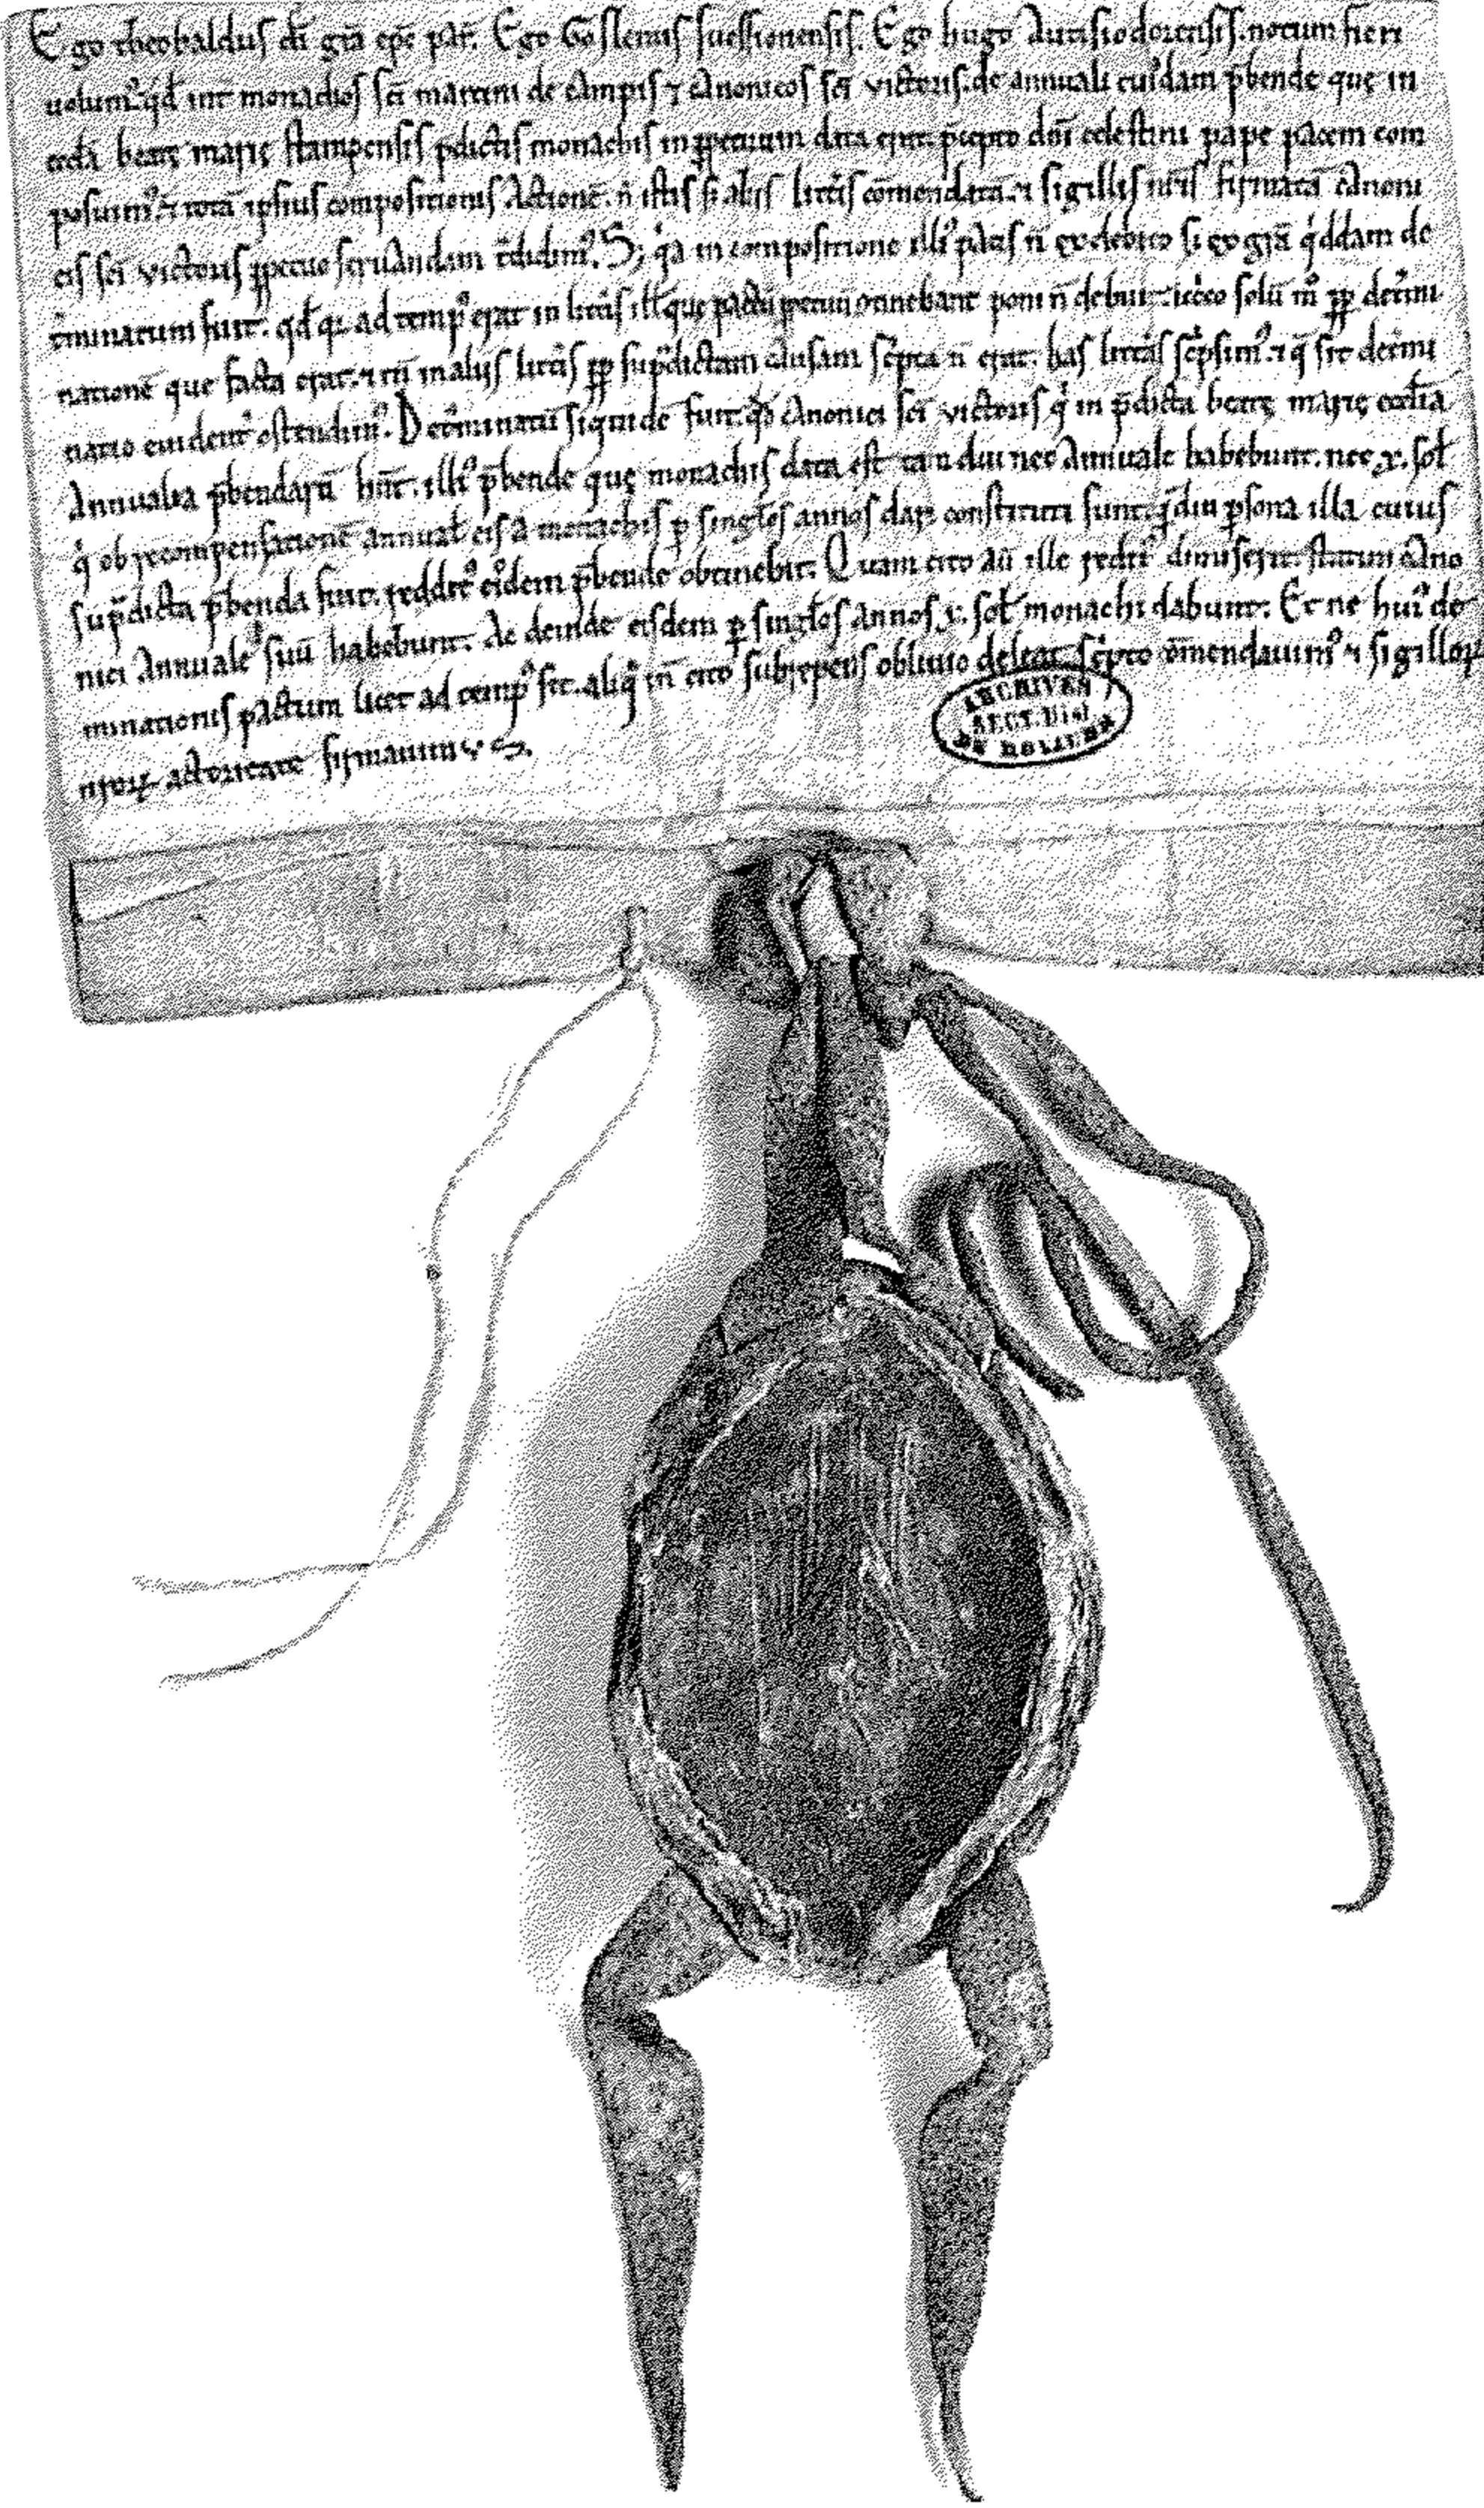 Ego theobaldus dī grā epc̄ par̄. Ego Goslenus suessionensis. Ego hugo Autisiodorensis. notum fieri
uolum᷒. qd̄ int̄ monachos sc̄i martini de campis ⁊ canonicos sc̄i victoris. de annuali cuidam p̄bende quę in
eccl̄a beatę marię stampensis p̄dictis monachis in ꝑpetuum data erat. p̄cepto dn̄i celestini pape pacem com
posuim᷒. ⁊ totā ipsius compositionis Actionē. n̄ istis s; alijs litt̄is cōmendatā. ⁊ sigillis nr̄is firmatā canoni
cis sc̄i victoris ꝑpetuo seruandam t̄didim᷒. S; q̇a in compositione illi᷒ pacis n̄ ex debito s; ex grā q̇ddam de
t̄minatum fuit. qd̄ q; ad temp᷒ erat in litt̄is ill̄ que pactū ꝑpetuū gtinebant poni n̄ debuit. iccirco solū m̊ ꝓp̄ det̄mi
nationē que facta erat. ⁊ tn̄ in alijs litt̄is ꝓp̄ sup̄dictam causam sc̄pta n̄ erat. has litt̄as sc̄psim᷒. ⁊ q̄ sit det̄mi
natio euident̄ ostendim᷒. Det̄minatū siquidē fuit. qd̄ canonici sc̄i victoris q̇ in p̄dicta beatę marię eccl̄ia
Annualia p̄bendarū hn̄t. illi᷒ p̄bende quę monachis data est tam diu nec Annuale habebunt. nec x. sol̄
q̇ ob recompensationē annual̄ eis a monachis ꝑ singl̄os annos dari constituti sunt. q̄diu ꝑsona illa cuius
sup̄dicta p̄benda fuit. reddit᷒ eiusdem p̄bende obtinebit. Quam cito aū ille reddit᷒ dimiserit. statim cano
nici Annuale suū habebunt. Ac deinde eisdem ꝑ singl̄os Annos x. sol̄ monachi dabunt. Et ne hui᷒ de
minationis pactum licet ad temp᷒ sit. aliq̇ tn̄ cito subrepens obliuio deleat. sc̄pto cōmendauim᷒ ⁊ sigilloꝝ
nr̄oꝝ actoritate firmauimus.
ARCHIVES
SECT. Hist
DU ROYAUME